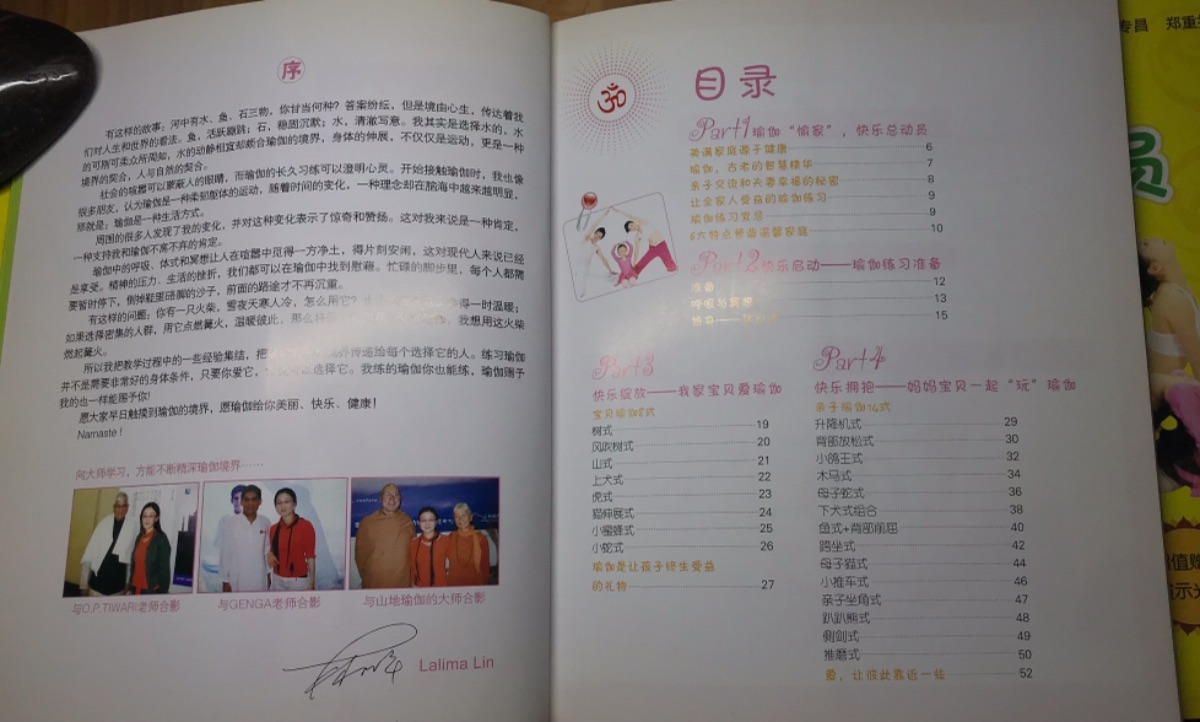 序
有这样的故事：河中有水、鱼、石三物，你甘当何种？答案纷纭，但是境由心生，传达着我
们对人生和世界的看法。鱼，活跃蹦跳；石，稳固沉默；水，清澈写意。我其实是选择水的，水
的可刚可柔众所周知，水的动静相宜却颇合瑜伽的境界，身体的伸展，不仅仅是运动，更是一种
境界的契合，人与自然的契合。
社会的喧嚣可以蒙蔽人的眼睛，而瑜伽的长久习练可以澄明心灵。开始接触瑜伽时，我也像
很多朋友，认为瑜伽是一种柔韧躯体的运动，随着时间的变化，一种理念却在脑海中越来越明显，
那就是：瑜伽是一种生活方式。
周围的很多人发现了我的变化，并对这种变化表示了惊奇和赞扬。这对我来说是一种肯定，
一种支持我和瑜伽不离不弃的肯定。
瑜伽中的呼吸、体式和冥想让人在喧嚣中觅得一方净土，得片刻安闲，这对现代人来说已经
是享受。精神的压力、生活的挫折，我们都可以在瑜伽中找到慰藉。忙碌的脚步里，每个人都需
要暂时停下，倒掉鞋里硌脚的沙子，前面的路途才不再沉重。
有这样的问题：你有一只火柴，雪夜天寒人冷，怎么用它？得一时温暖；
如果选择密集的人群，用它点燃篝火，温暖彼此，那么我想用这火柴
燃起篝火。
所以我把教学过程中的一些经验集结，把传递给每个选择它的人。练习瑜伽
并不是需要非常好的身体条件，只要你爱它，选择它。我练的瑜伽你也能练，瑜伽赐予
我的也一样能赐予你！
愿大家早日触摸到瑜伽的境界，愿瑜伽给你美丽、快乐、健康！
Namaste！
向大师学习，方能不断精深瑜伽境界……
与O.P.TIWARI老师合影
与GENGA老师合影
与山地瑜伽的大师合影
Lalima Lin
目录
Part1瑜伽“愉家”，快乐总动员
美满家庭源于健康 6
瑜伽，古老的智慧精华 7
亲子交流和夫妻幸福的秘密 8
让全家人受益的瑜伽练习 9
瑜伽练习宜忌 9
6大特点营造温馨家庭 10
Part2快乐启动——瑜伽练习准备
准备 12
呼吸与冥想 13
15
Part3
快乐绽放——我家宝贝爱瑜伽
宝贝瑜伽8式
树式 19
风吹树式 20
山式 21
上犬式 22
虎式 23
猫伸展式 24
小蜜蜂式 25
小蛇式 26
瑜伽是让孩子终生受益
的礼物 27
Part4
快乐拥抱——妈妈宝贝一起“玩”瑜伽
亲子瑜伽14式
升降机式 29
背部放松式 30
小鸽王式 32
木马式 34
母子蛇式 36
下犬式组合 38
鱼式+背部前屈 40
跨坐式 42
母子猫式 44
小推车式 46
亲子坐角式 47
趴趴熊式 48
侧剑式 49
推磨式 50
爱，让彼此靠近一些 52
专昌 郑重
员
值
示